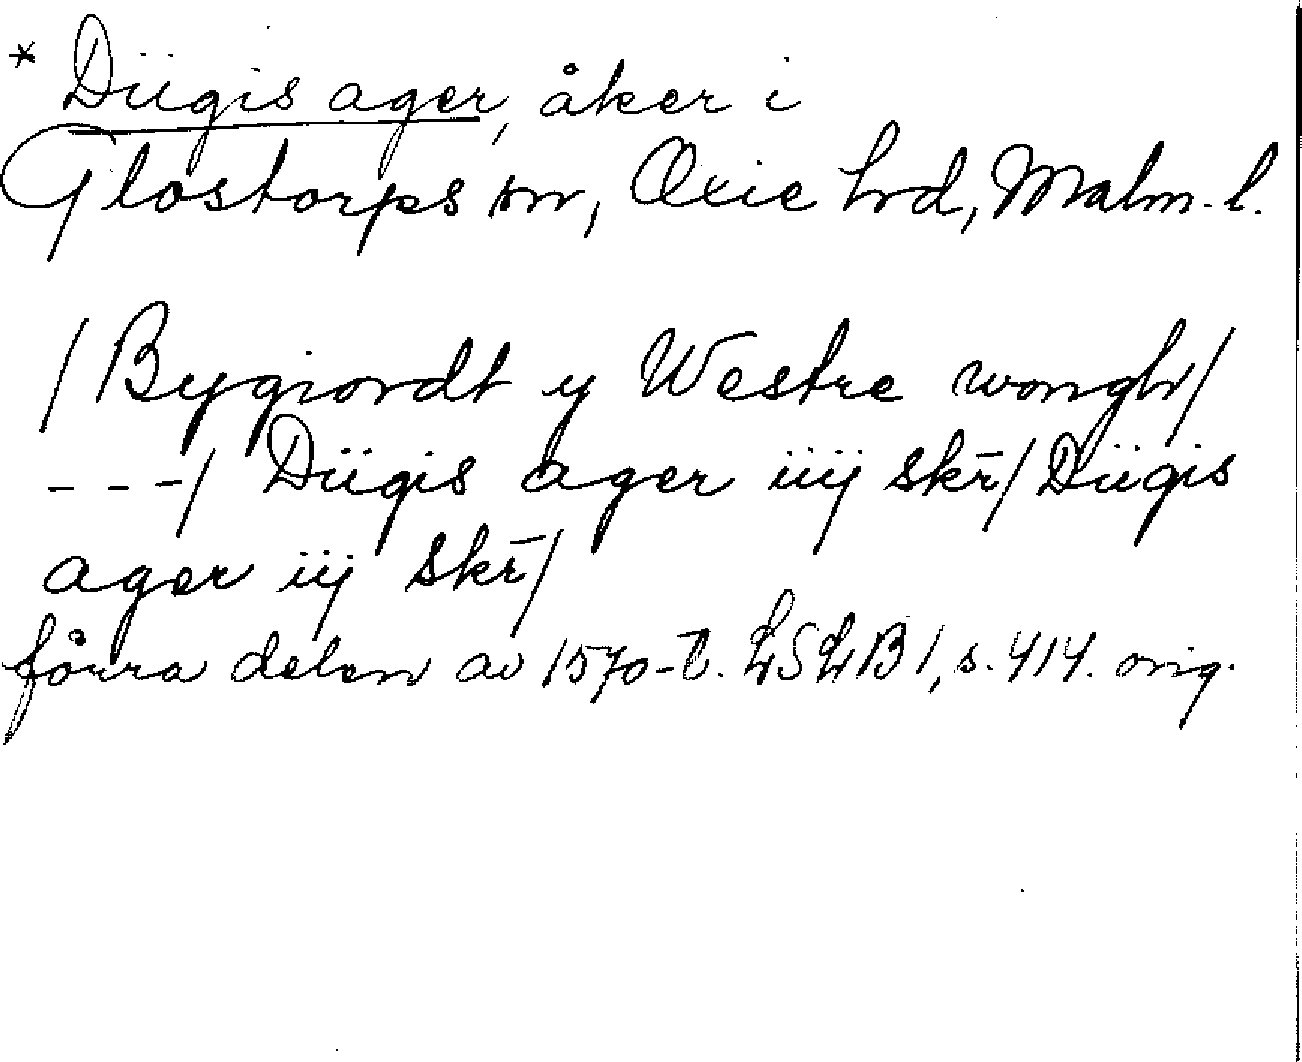 * Diigis ager, åker i
Glostorps sn, Oxie hrd, Malm. l.
/ Bygiordt y Westre wongh/
- - -/ Diigis ager iiij skr̄/ Diigis
ager iij Skr̄/
förra delen av 1570-t. LSLB 1, s. 414. orig.